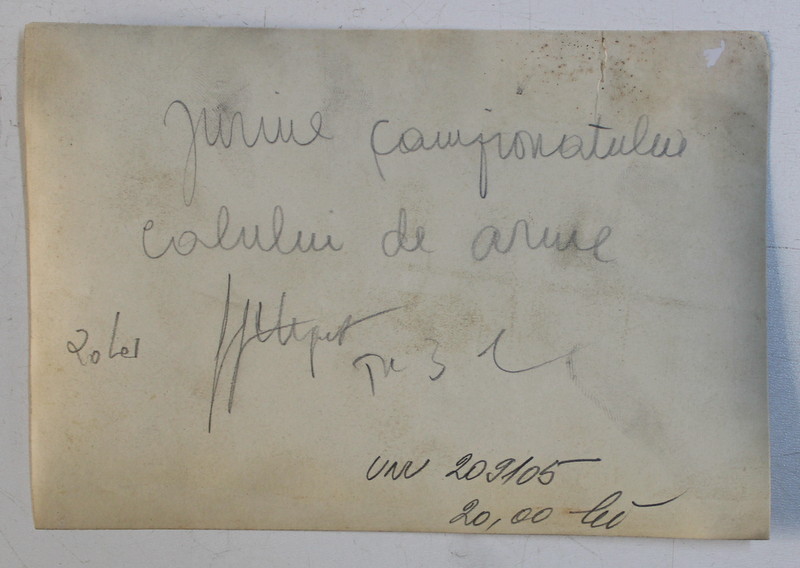 Juriul campionatului
calului de arme
20 lei
Tr 3
UNV 209105
20,00 lei